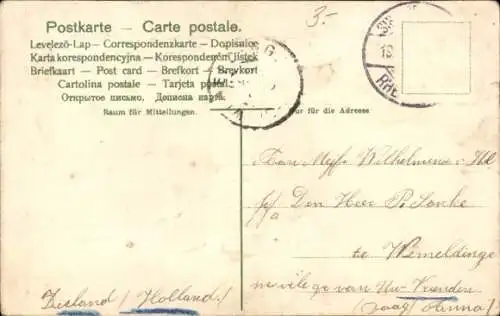 3.-
Postkarte — Carte postale.
Levelező-Lap — Correspondenzkarte — Dopisnice
Karta korespondencyjna — Korespondenčni listek
Briefkaart — Post card — Brefkort — Brevkort
Cartolina postale — Tarjeta postal
Открытое письмо. Дописна карта.
Raum für Mittellungen.
Nur für die Adresse
Wilhelmena
Den Heer P.
te Wemeldinge
van Uw Vrienden
Zeeland / Holland /